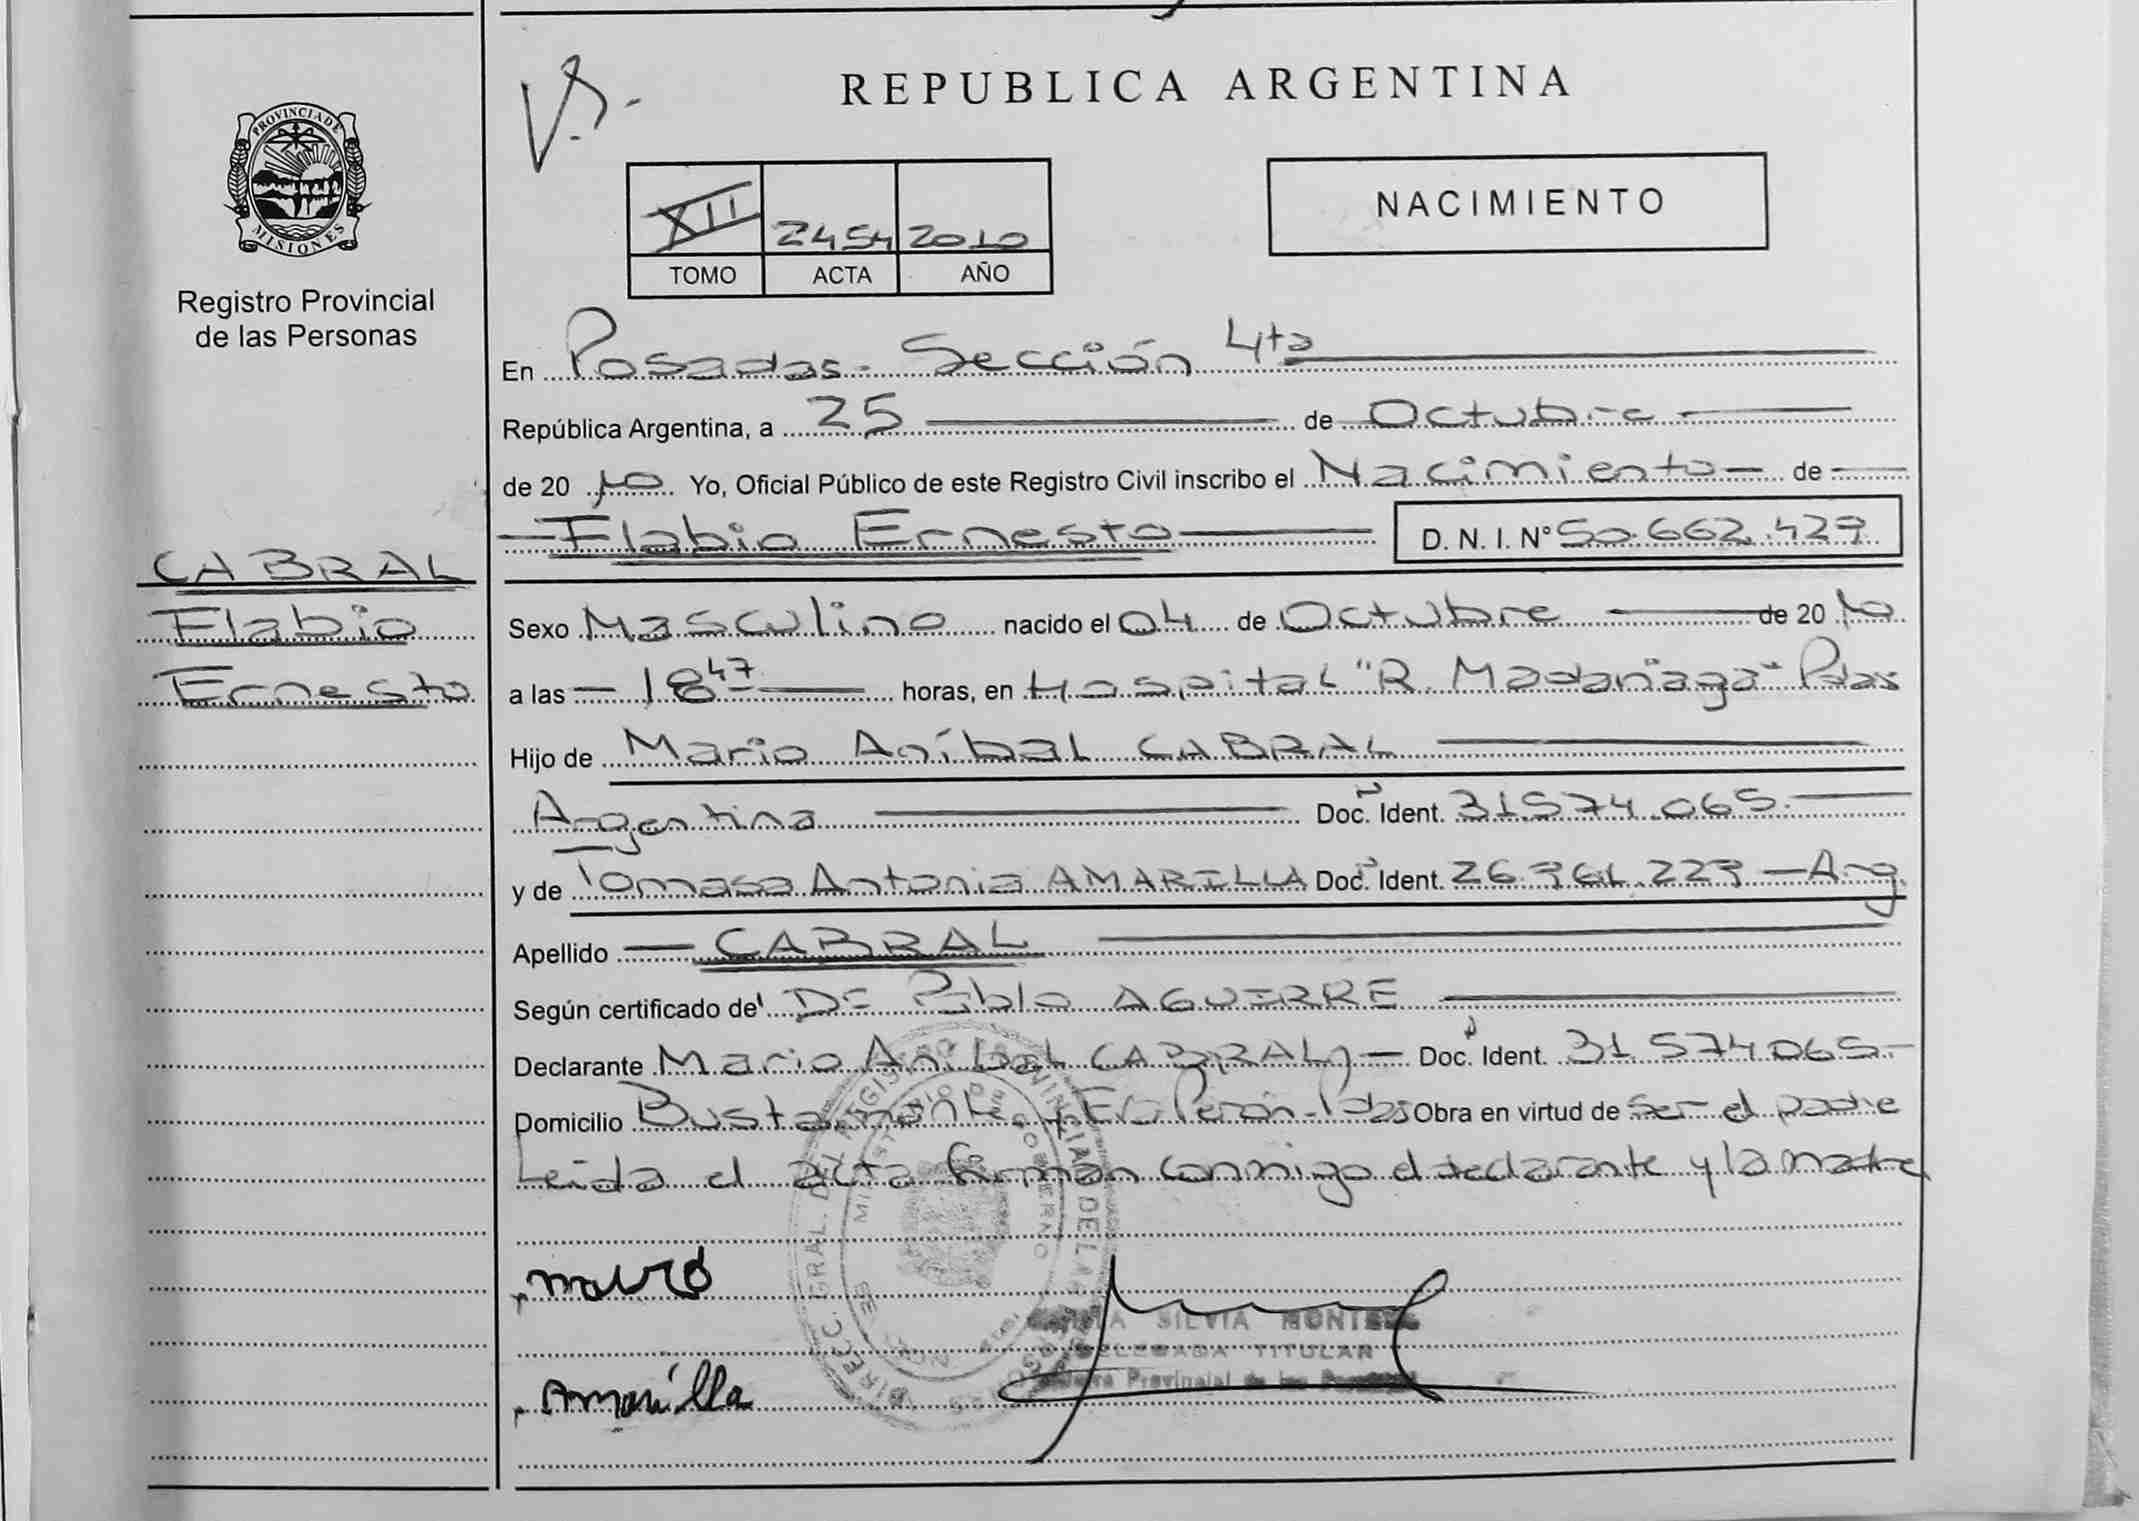 REPUBLICA ARGENTINA
V.S.-
PROVINCIA DE
MISIONES
Registro Provincial
de las Personas
XII 2454 2010
TOMO ACTA AÑO
NACIMIENTO
En Posadas - Sección 4ta
República Argentina, a 25 de Octubre
de 20 10 Yo, Oficial Público de este Registro Civil inscribo el Nacimiento de
Flabio Ernesto D. N. I. Nº 50.662.429
CABRAL
Flabio
Ernesto
Sexo Masculino nacido el 04 de Octubre de 20 10
a las 18 47 horas, en Hospital "R. Madariaga" Pdas
Hijo de Mario Aníbal CABRAL
Argentina Doc. Ident. 31.574.065.
y de Tomasa Antonia AMARILLA Doc. Ident. Arg.
Apellido CABRAL
Según certificado de Pablo AGUIRRE
Declarante Mario Anibal CABRAL Doc. Ident. 31.574.065.-
Domicilio Bustamante y Eva Perón - Pdas Obra en virtud de ser el padre
Leida el acta firman conmigo el declarante y la madre
Amarilla
SILVIA
DELEGADA TITULAR
Provincial de las Personas